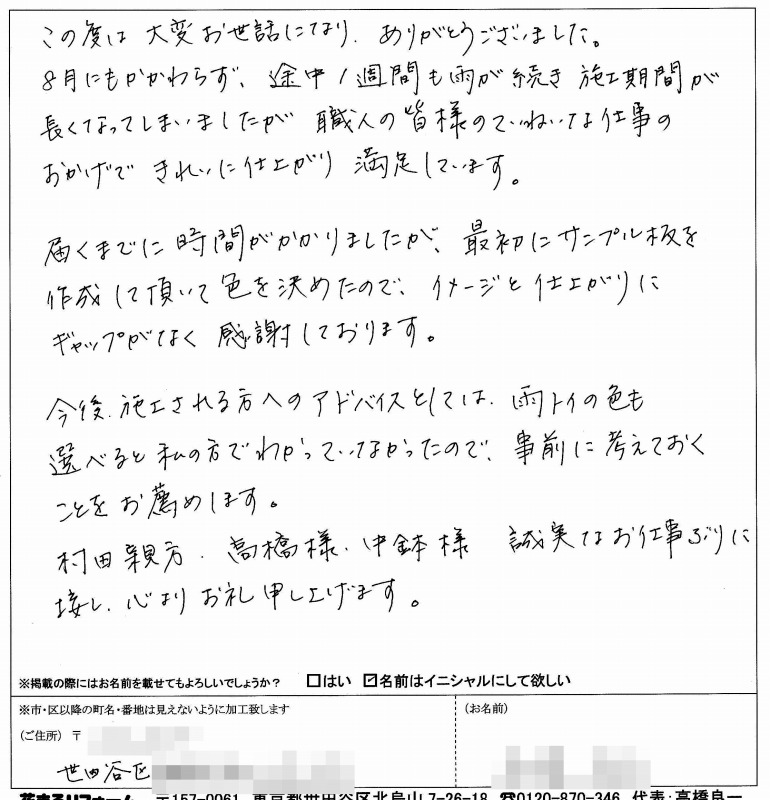 この度は 大変お世話になり、ありがとうございました。
8月にもかかわらず、途中1週間も雨が続き 施工期間が
長くなってしまいましたが 職人の皆様のていねいな仕事の
おかげで きれいに仕上がり 満足しています。
届くまでに時間がかかりましたが、最初にサンプル板を
作成して頂いて色を決めたので、イメージと仕上がりに
ギャップがなく 感謝しております。
今後、施工される方へのアドバイスとしては、雨トイの色も
選べると私の方でわかっていなかったので、事前に考えておく
ことをお薦めします。
村田親方、高橋様、中鉢様 誠実なお仕事ぶりに
接し、心よりお礼申し上げます。
※掲載の際にはお名前を載せてもよろしいでしょうか? □はい ☑名前はイニシャルにして欲しい
※市・区以降の町名・番地は見えないように加工致します
(ご住所) 〒
(お名前)
世田谷区
花まるリフォーム 〒157-0061 東京都世田谷区北烏山7-26-18 ☎0120-870-346 代表:高橋良一